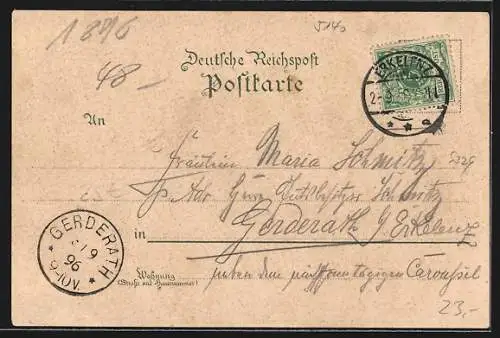 1896
5140
48 –
Deutsche Reichspost
Postkarte
ERKELENZ
An
Fräulein Maria Schmitz
p. Adr. Herrn Gutsbesitzer Schmitz
in Gerderath b/ Erkelenz
GERDERATH
1/9
96
9-10V.
Wohnung
(Straße und Hausnummer)
neben dem Caroussel
23,-